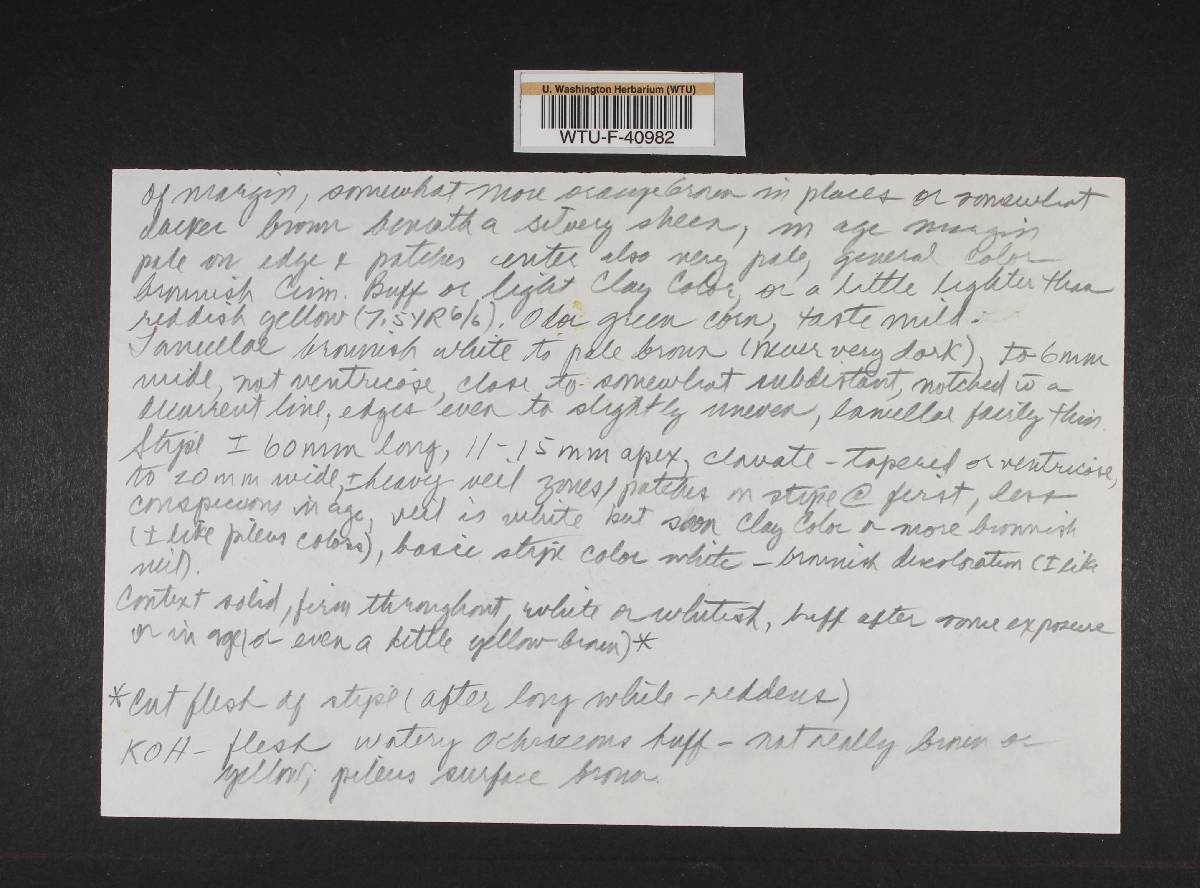 U. Washington Herbarium (WTU)
WTU-F-40982
of margin, somewhat more orange brown in places or somewhat
darker brown beneath a silvery sheen, in age margin
pale on edge & patches center also very pale, general color
brownish Cinn. Buff or light Clay Color, or a little lighter than
reddish yellow (7.5YR6/6). Odor green corn, taste mild.
Lamellae brownish white to pale brown (never very dark), to 6mm
wide, not ventricose, close to somewhat subdistant, notched w a
decurrent line, edges even to slightly uneven, lamellae fairly thin.
Stipe ± 60mm long, 11-15mm apex, clavate - tapered or ventricose,
to 20mm wide, ± heavy veil zones/patches on stipe @ first, less
conspicuous in age, veil is white but soon Clay Color or more brownish
(± like pileus colors), basic stipe color white - brownish discoloration (± like
veil).
Context solid, firm throughout, white or whitish, buff after some exposure
or in age (or even a little yellow brown)*
*Cut flesh of stipe (after long while - reddens)
KOH - flesh watery ochraceous buff - not really brown or
yellow; pileus surface brown.